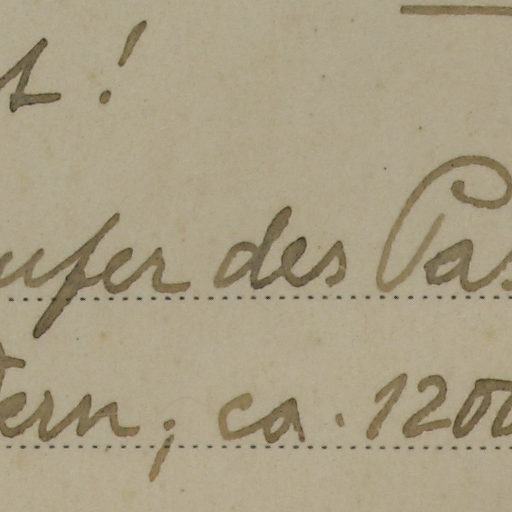 t!
ufer des Pas
ern, ca. 1200